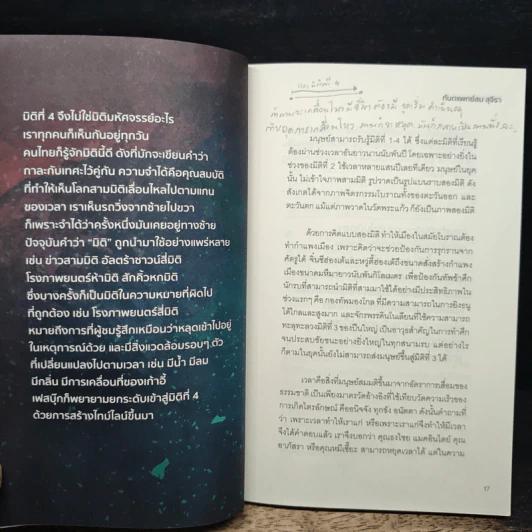 มิติที่ 4 จึงไม่ใช่มิติมหัศจรรย์อะไร
เราทุกคนก็เห็นกันอยู่ทุกวัน
คนไทยก็รู้จักมิตินี้ดี ดังที่มักจะเขียนคำว่า
กาละกับเทศะไว้คู่กัน ความจำได้คือคุณสมบัติ
ที่ทำให้เห็นโลกสามมิติเลื่อนไหลไปตามแกน
ของเวลา เราเห็นรถวิ่งจากซ้ายไปขวา
ก็เพราะจำได้ว่าครั้งหนึ่งมันเคยอยู่ทางซ้าย
ปัจจุบันคำว่า “มิติ” ถูกนำมาใช้อย่างแพร่หลาย
เช่น ข่าวสามมิติ อัลตร้าซาวน์สี่มิติ
โรงภาพยนตร์ห้ามิติ สักคิ้วหกมิติ
ซึ่งบางครั้งก็เป็นมิติในความหมายที่ผิดไป
ที่ถูกต้อง เช่น โรงภาพยนตร์สี่มิติ
หมายถึงการที่ผู้ชมรู้สึกเหมือนว่าหลุดเข้าไปอยู่
ในเหตุการณ์ด้วย และมีสิ่งแวดล้อมรอบๆ ตัว
ที่เปลี่ยนแปลงไปตามเวลา เช่น มีน้ำ มีลม
มีกลิ่น มีการเคลื่อนที่ของเก้าอี้
เฟสบุ๊กก็พยายามยกระดับเข้าสู่มิติที่ 4
ด้วยการสร้างไทม์ไลน์ขึ้นมา
ทันตแพทย์สม สุจีรา
มนุษย์สามารถรับรู้มิติที่ 1-4 ได้ ซึ่งแต่ละมิติที่เรียนรู้
ต้องผ่านช่วงเวลาอันยาวนานนับพันปี โดยเฉพาะอย่างยิ่งใน
ช่วงของมิติที่ 2 ใช้เวลาหลายแสนปีเลยทีเดียว มนุษย์ในยุค
นั้น ไม่เข้าใจภาพสามมิติ รูปวาดเป็นรูปแบนราบสองมิติ ดัง
สังเกตได้จากภาพจิตรกรรมโบราณทั้งของตะวันออก และ
ตะวันตก แม้แต่ภาพวาดในวัดพระแก้ว ก็ยังเป็นภาพสองมิติ
ด้วยการคิดแบบสองมิติ ทำให้เมืองในสมัยโบราณต้อง
ทำกำแพงเมือง เพราะคิดว่าจะช่วยป้องกันการรุกรานจาก
ศัตรูได้ จิ๋นซีฮ่องเต้และหวู่ตี้ฮ่องเต้ถึงขนาดสั่งสร้างกำแพง
เมืองขนาดมหึมายาวนับพันกิโลเมตร เพื่อป้องกันทัพข้าศึก
นักรบที่สามารถนำมิติที่สามมาใช้ได้อย่างมีประสิทธิภาพใน
ช่วงแรกๆ คือ กองทัพมองโกล ที่มีความสามารถในการยิงธนู
ได้ไกลและสูงมาก และจักรพรรดินโปเลียนที่ใช้ความสามารถ
ทะลุทะลวงมิติที่ 3 ของปืนใหญ่ เป็นอาวุธสำคัญในการทำศึก
จนประสบชัยชนะอย่างยิ่งใหญ่ในทุกสนามรบ แต่อย่างไร
ก็ตามในยุคนั้นยังไม่สามารถส่งมนุษย์ขึ้นสู่มิติที่ 3 ได้
เวลาคือสิ่งที่มนุษย์สมมติขึ้นมาจากอัตราการเสื่อมของ
ธรรมชาติ เป็นเพียงมาตรวัดอ้างอิงที่ใช้เทียบวัดความเร็วของ
การเกิดไตรลักษณ์ คืออนิจจัง ทุกขัง อนัตตา ดังนั้นคำถามที่
ว่า เพราะเวลาทำให้เราแก่ หรือเพราะเราแก่จึงทำให้มีเวลา
จึงได้คำตอบแล้ว เราจึงบอกว่า คุณธงไชย แมคอินไตย์ คุณ
อาภัสรา หรือคุณหมีเซี้ยะ สามารถหยุดเวลาได้ แต่ในความ
17